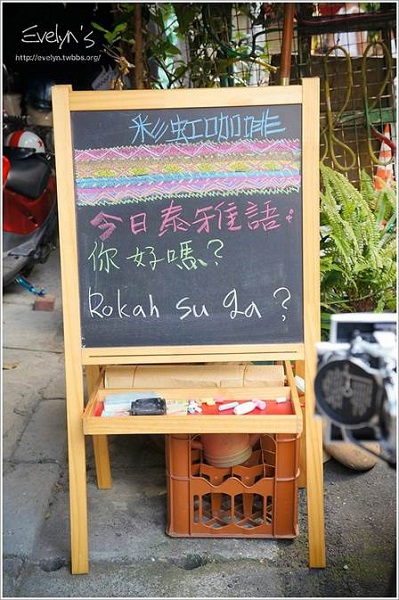 Evelyn's
http://evelyn.twbbs.org/
彩虹咖啡
今日泰雅語：
你好嗎？
kokah su ga ?